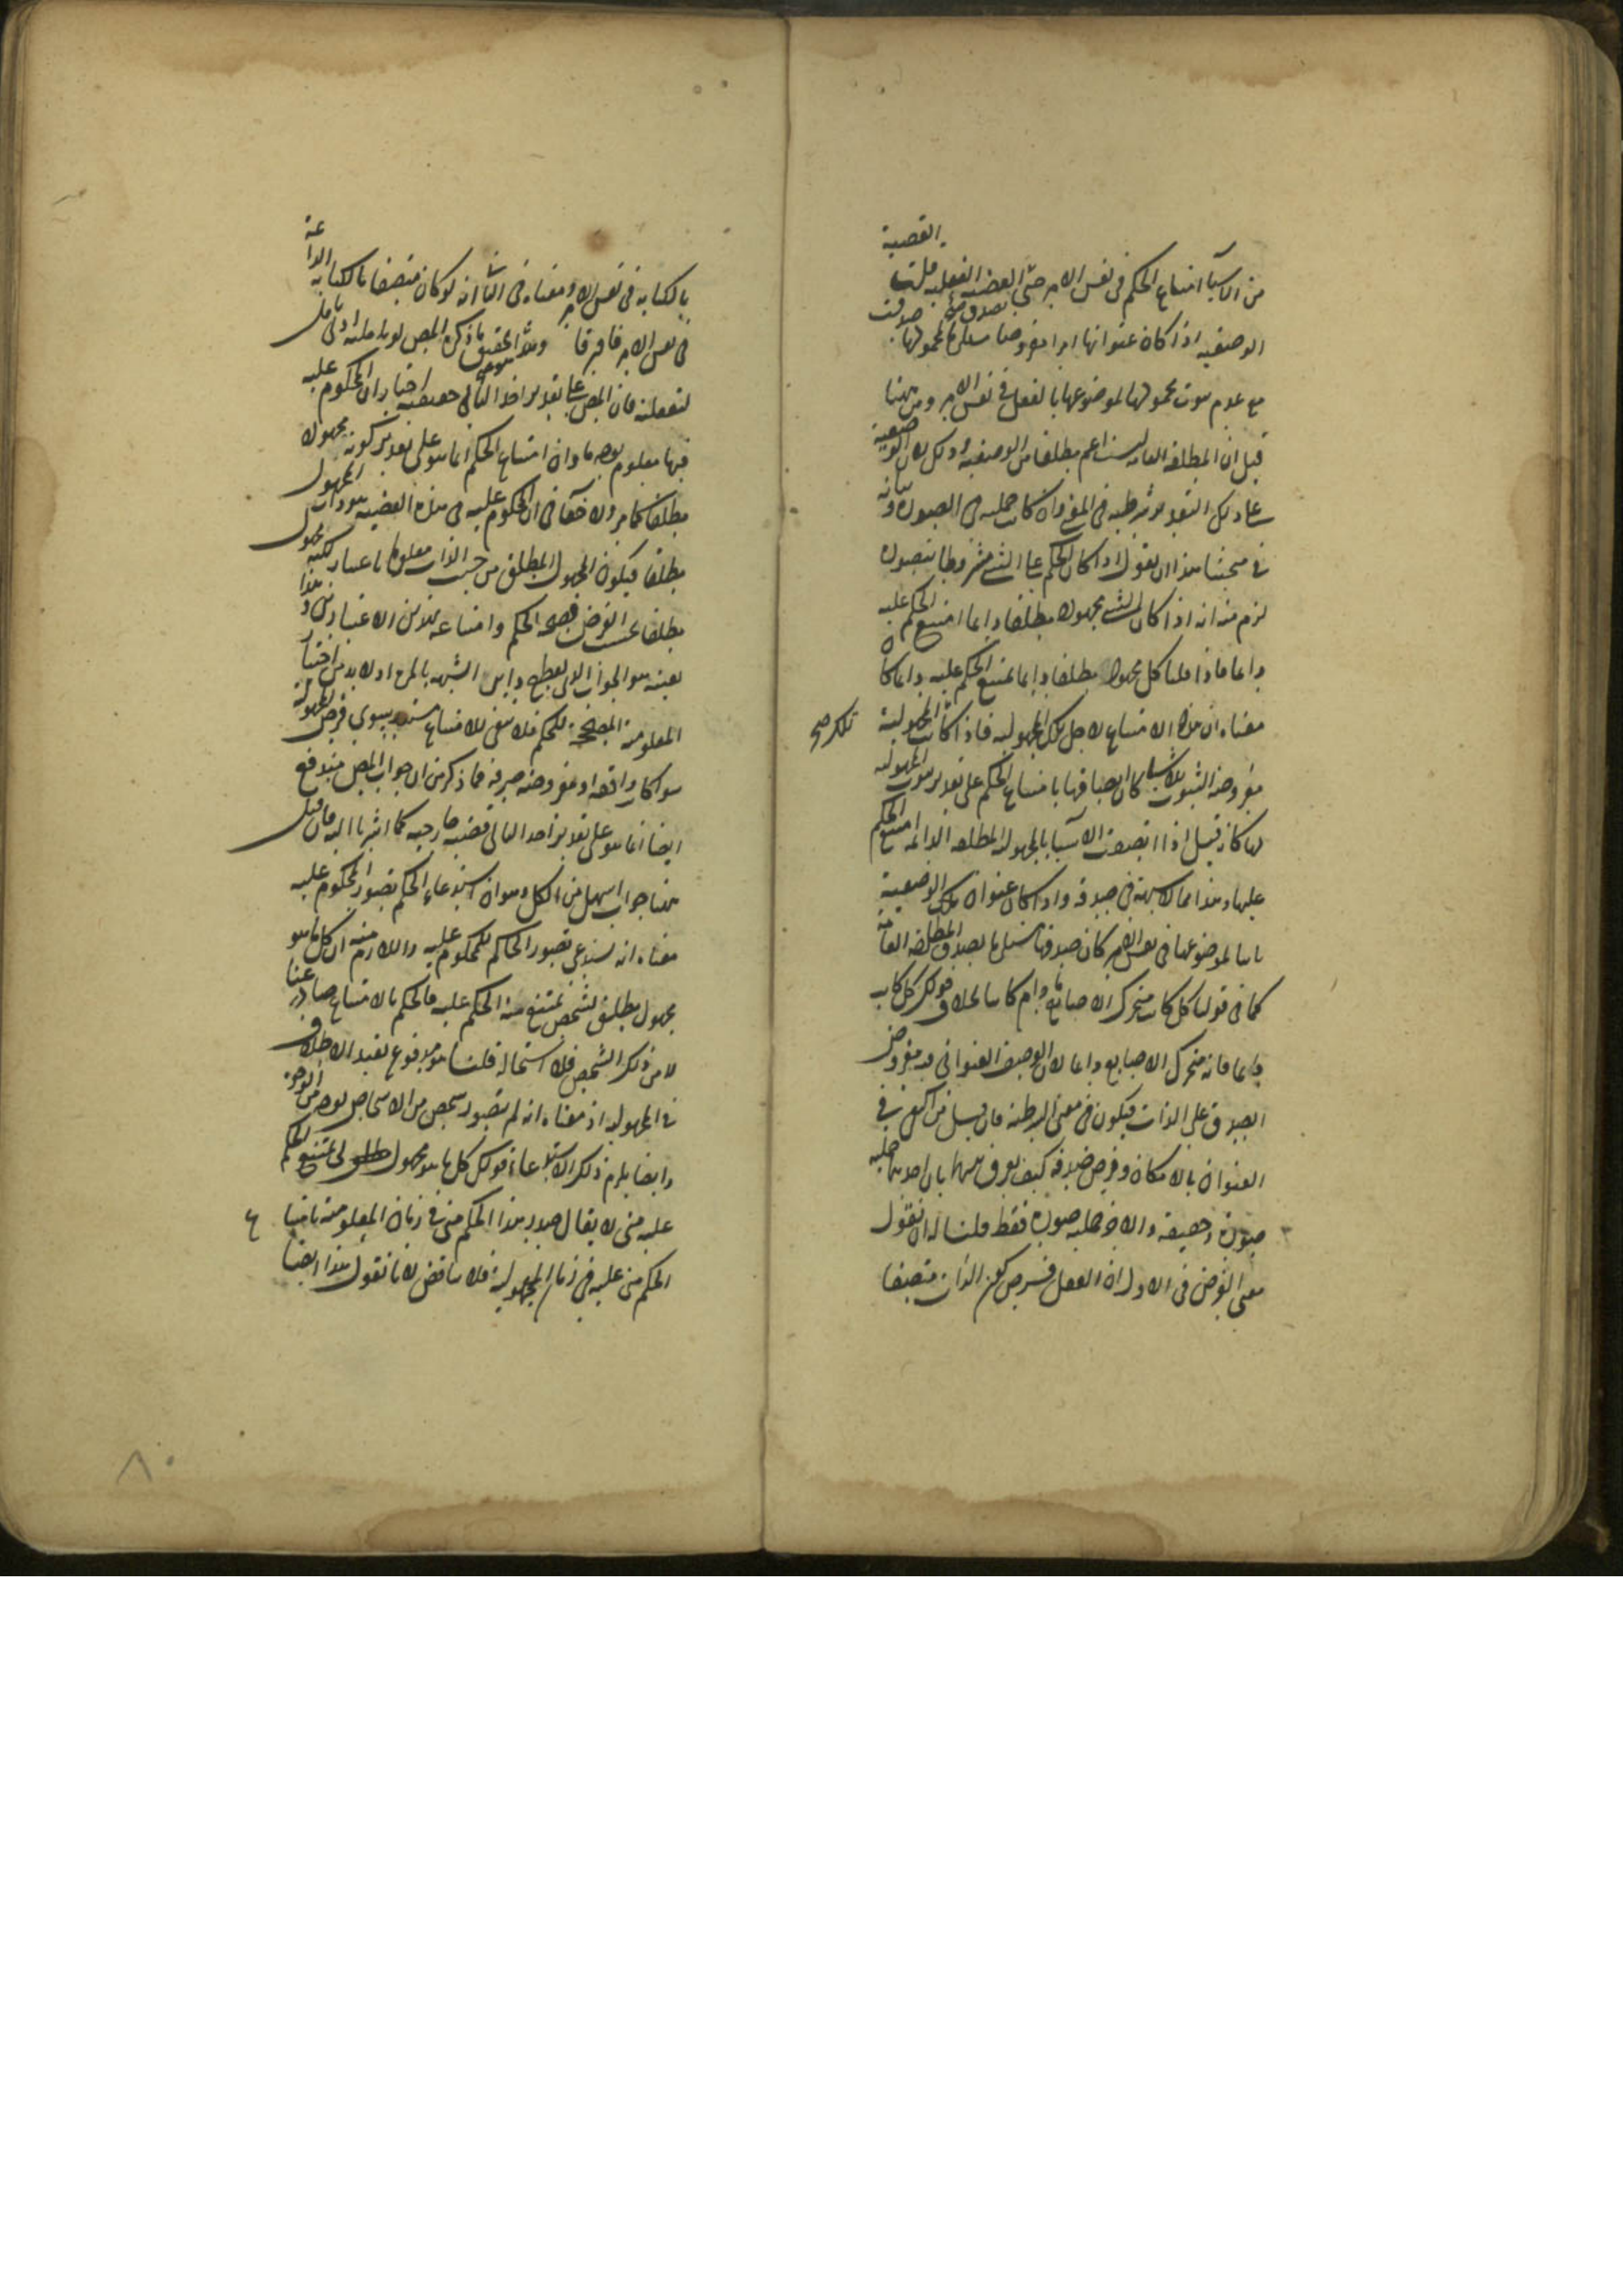 القضية
من الاسباب امتناع الحكم في نفس الامر حتى القضية الفعلية قلت
الوصفية اذا كان عنوانها امرا مفروضا لمحمولها صدقت
مع عدم ثبوت محمولها لموضوعها بالفعل في نفس الامر ومن ههنا
قيل ان المطلقة العامة ليست اعم مطلقا من الوصفية وذلك لان الوصفية
على ذلك التقدير شرطية في المعنى وان كانت حملية في الصورة وبيانه
في مبحثنا هذا ان نقول اذا كان الحكم على الشيء مشروطا بتصوره
لزم منه انه اذا كان الشيء مجهولا مطلقا دايما امتنع الحكم عليه
دايما فاذا قلنا كل مجهول مطلقا دايما يمتنع الحكم عليه دايما كان
معناه ان هذا الامتناع لاجل تلك المجهولية فاذا كانت المجهولية
تلك صح
مفروضة الثبوت للاشياء كان اتصافها بامتناع الحكم على تقدير ثبوت المجهولية
لها كانه قيل اذا اتصفت الاشيا بالمجهولية المطلقة الدائمة امتنع الحكم
عليها وهذا مما لا شبهة في صدقه واذا كان عنوان تلك الوصفية
ثابتا لموضوعها في نفس الامر كان صدقها مستلزما لصدق المطلقة العامة
كما في قولنا كل كاتب متحرك الاصابع ما دام كاتبا بخلاف قولك كل كاتب
دايما فانه متحرك الاصابع دايما لان الوصف العنواني فيه مفروض
الصدق على الذات فيكون في معنى الشرطية فان قيل من اكتفى في
العنوان بالامكان وفرض صدقه كيف يفرق بينهما بان احديهما حملية
صورة وحقيقة والاخر حملية صورة فقط قلنا له ان نقول
معنى الفرض في الاول ان العقل يفرض كون الذات متصفا
بالكتابة في نفس الامر ومعناه في الثاني انه لو كان متصفا بالكتابة الدائمة
في نفس الامر فافترقا وهذا التحقيق ما ذكره المص لو تاملته ادنى تامل
لتعقلته فان المص على تقدير اخذ التالي حقيقية اختار ان المحكوم عليه
فيها معلوم بوجه ما وان امتناع الحكم انما هو على تقدير كونه مجهولا
مطلقا كما مر ولا خفاء في ان المحكوم عليه في هذه القضية هو ذات المجهول
مطلقا فيكون المجهول المطلق من حيث الذات معلوما باعتبار لكنه مجهول
مطلقا بحسب الفرض فصحة الحكم وامتناعه بهذين الاعتبارين وهذا
بعينه هو الجواب الذي يقطع دابر الشبهة بالمرة اذ لا بد من اختيار
المعلومية المصححة للحكم فلا يبقى للامتناع سند سوى فرض المجهولية
سواء كان واقعة او مفروضة صرفة فما ذكر من ان جواب المص مندفع
ايضا انما هو على تقدير اخذ التالي قضية خارجية كما اشرنا اليه فان قيل
ههنا جواب اسهل من الكل وهو ان استدعاء الحكم تصور المحكوم عليه
معناه انه يستدعي تصور الحاكم للمحكوم عليه واللازم منه ان كل ما هو
مجهول مطلق لشخص يمتنع منه الحكم عليه فالحكم بالامتناع صادر عنا
لا من ذلك الشخص فلا استحالة قلنا هو مدفوع بقيد الاطلاق
في المجهولية اذ معناه انه لم يتصوره شخص من الاشخاص بوجه من الوجوه
وايضا يلزم ذلك الاستدعاء قولك كل ما هو مجهول لي يمتنع الحكم
عليه مني لا يقال صدر هذا الحكم مني في زمان المعلومية بامتناع
الحكم مني عليه في زمان المجهولية فلا تناقض لانا نقول هذا ايضا
٨٠